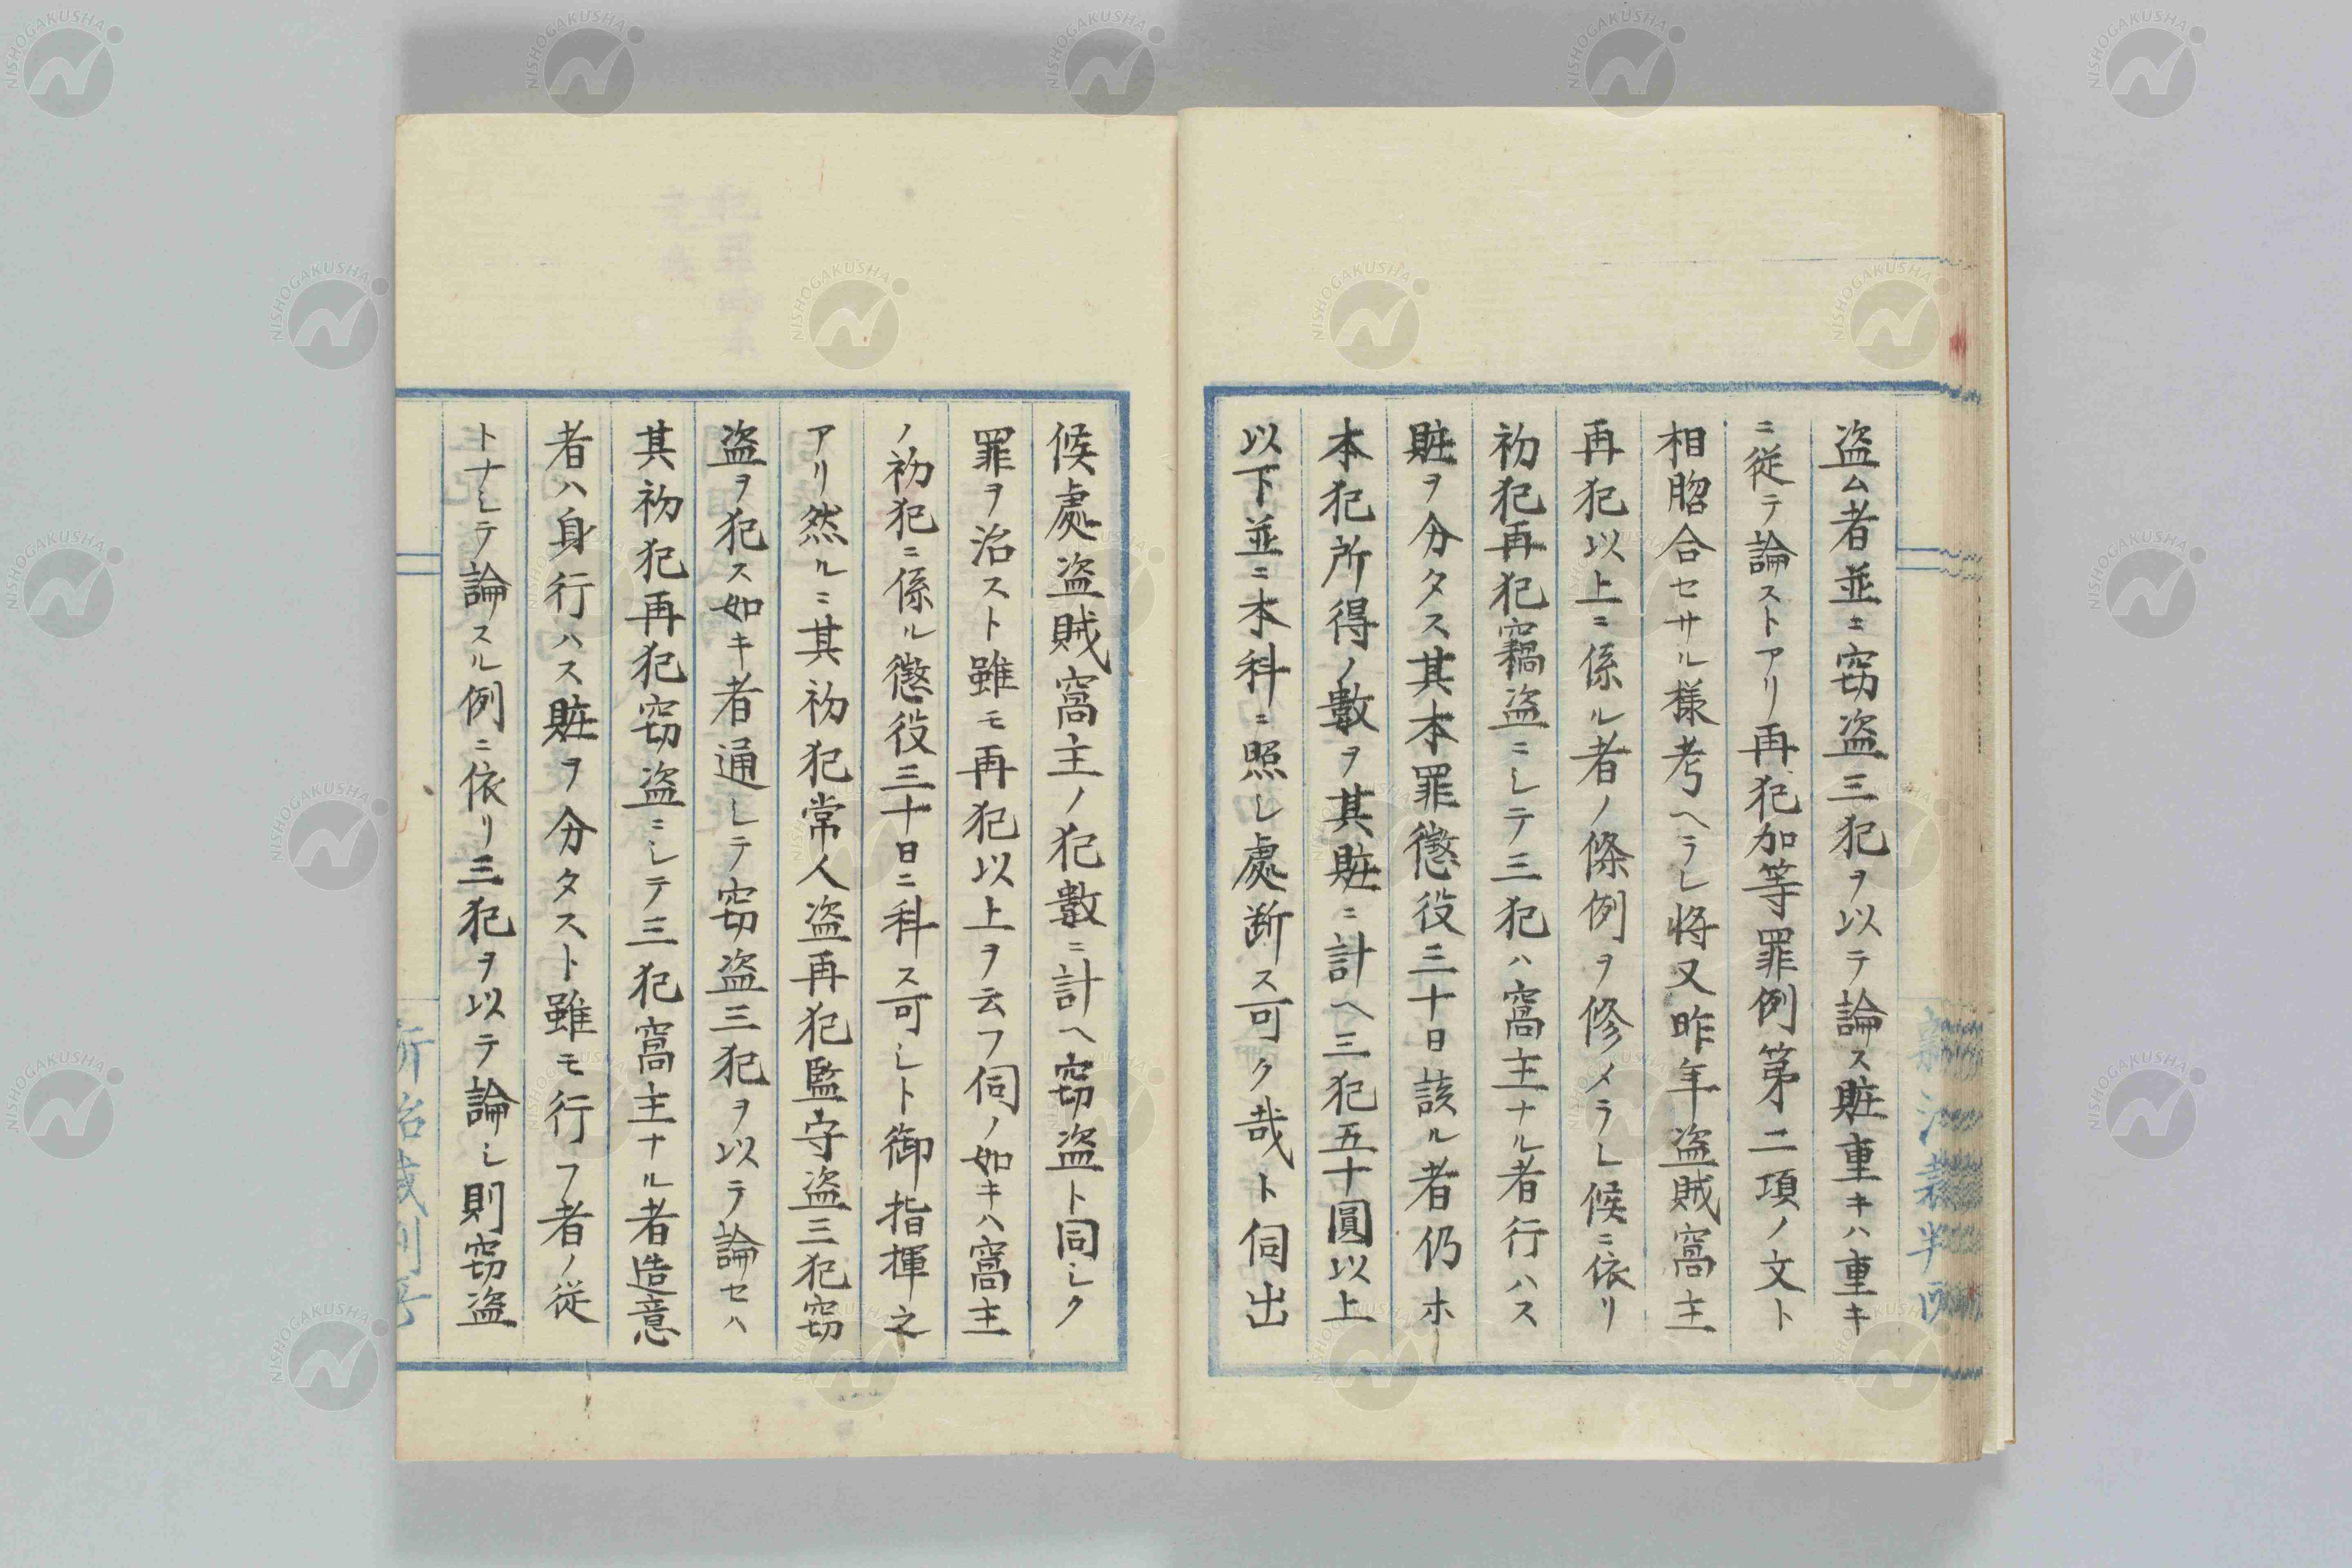 盗ム者並ニ窃盗三犯ヲ以テ論ス賍重キハ重キ
ニ従テ論ストアリ再犯加等罪例第二項ノ文ト
相䐇合セサル様考ヘラレ将又昨年盗賊窩主
再犯以上ニ係ル者ノ條例ヲ修メラレ候ニ依リ
初犯再犯竊盗ニシテ三犯ハ窩主ナル者行ハス
賍ヲ分タス其本罪懲役三十日該ル者仍ホ
本犯所得ノ數ヲ其賍ニ計ヘ三犯五十圓以上
以下並ニ本科ニ照シ處断ス可ク哉ト伺出
候處盗賊窩主ノ犯數ニ計ヘ窃盗ト同シク
罪ヲ治スト雖モ再犯以上ヲ云フ伺ノ如キハ窩主
ノ初犯ニ係ル懲役三十日ニ科ス可シト御指揮之
アリ然ルニ其初犯常人盗再犯監守盗三犯窃
盗ヲ犯ス如キ者通シテ窃盗三犯ヲ以テ論セハ
其初犯再犯窃盗ニシテ三犯窩主ナル者造意
者ハ身行ハス賍ヲ分タスト雖モ行フ者ノ従
トナシテ論スル例ニ依リ三犯ヲ以テ論シ則窃盗
NISHOGAKUSHA